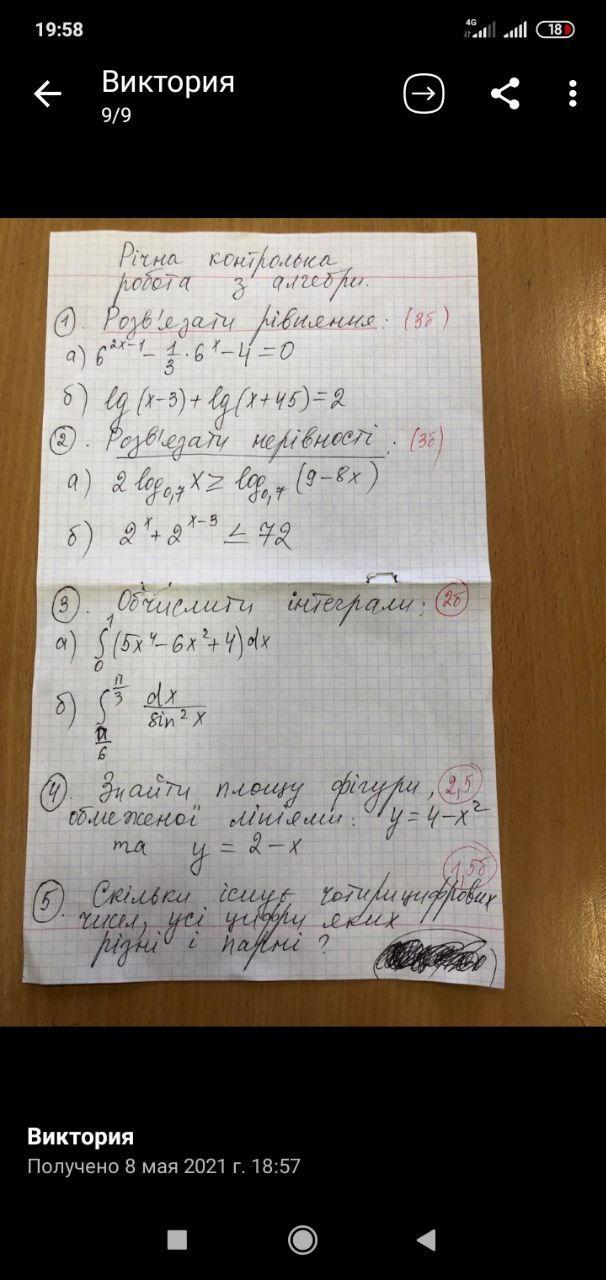 19:58
4G
18
Виктория
9/9
Річна контролька
робота з алгебри.
1. Розв'язати рівняння: (3б)
а) 6^(2x-1) - 1/3 · 6^x - 4 = 0
б) lg (x-3) + lg (x+45) = 2
2. Розв'язати нерівності: (3б)
а) 2 log_0,7 x ≥ log_0,7 (9-8x)
б) 2^x + 2^(x-3) ≤ 72
3. Обчислити інтеграли: 2б
а) ∫_0^1 (5x^4 - 6x^2 + 4) dx
б) ∫_(π/6)^(π/3) dx / sin^2 x
4. Знайти площу фігури, 2,5
обмеженої лініями: y = 4 - x^2
та y = 2 - x
1,5б
5. Скільки існує чотирицифрових
чисел, усі цифри яких
різні і парні?
Виктория
Получено 8 мая 2021 г. 18:57